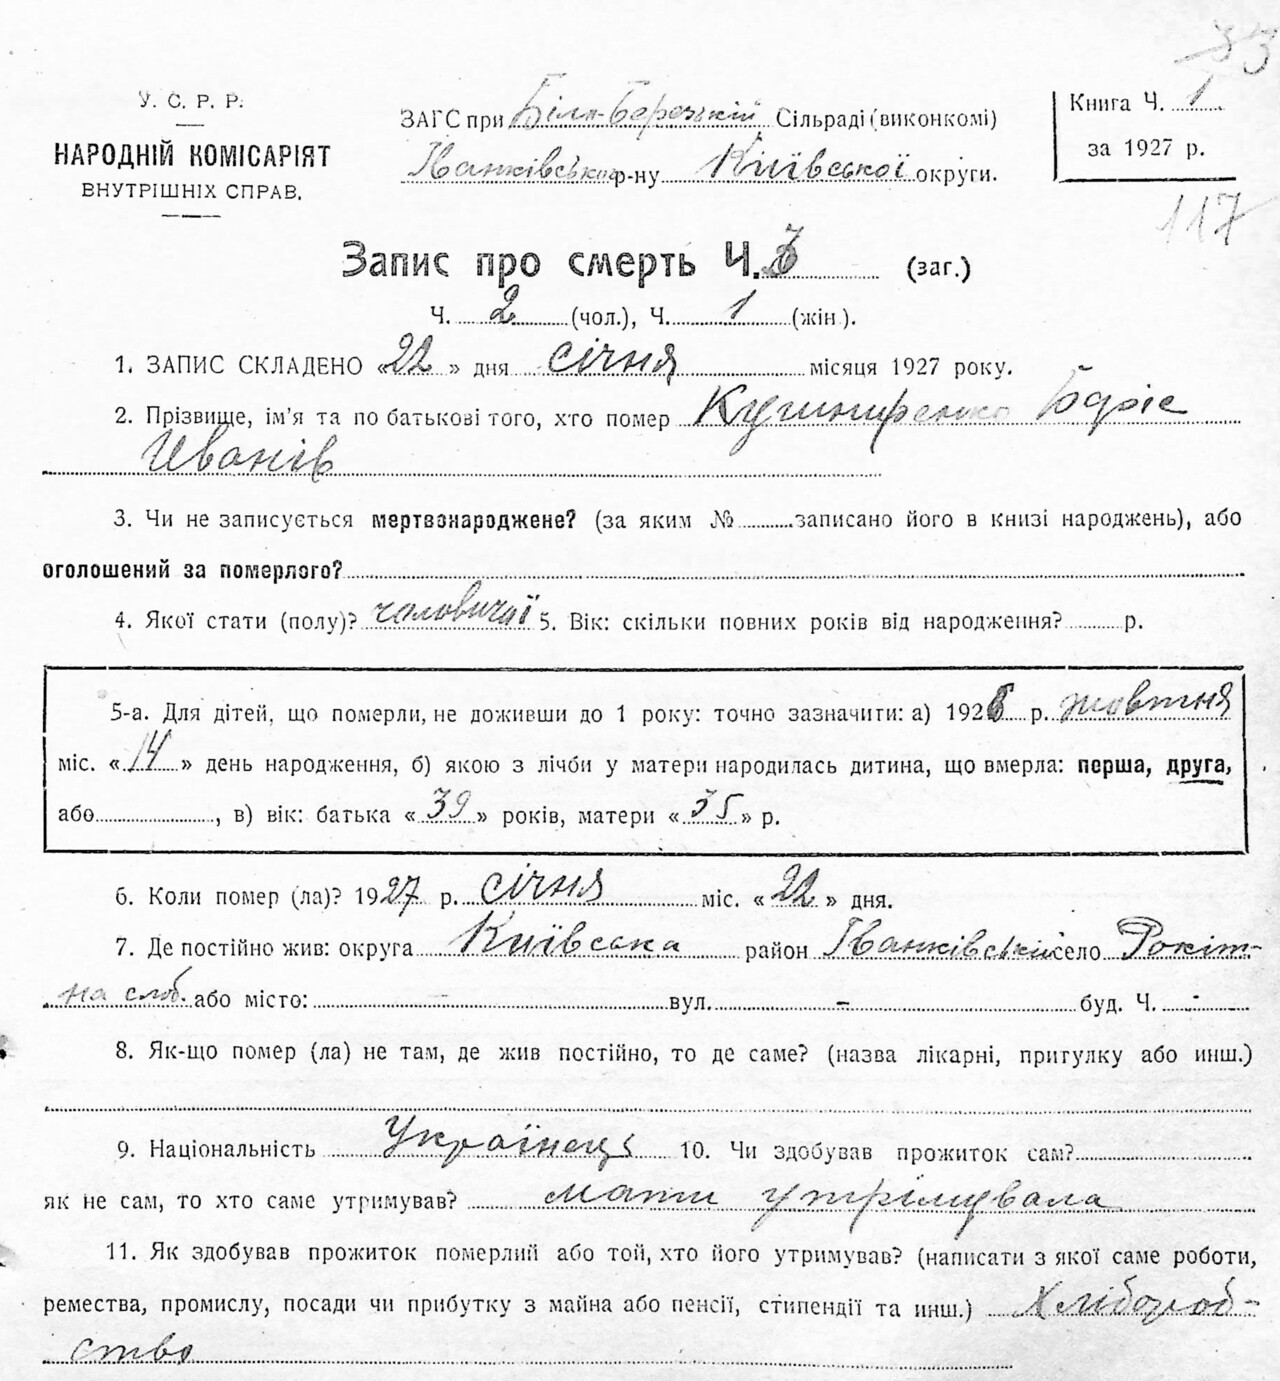 33
У. С. Р. Р.
НАРОДНІЙ КОМІСАРІЯТ
ВНУТРІШНІХ СПРАВ.
ЗАГС при Біло-Березькій Сільраді (виконкомі)
Іванківськог р-ну Київської округи.
Книга Ч. 1
за 1927 р.
117
Запис про смерть Ч. 3 (заг.)
Ч. 2 (чол.), Ч. 1 (жін).
1. ЗАПИС СКЛАДЕНО «22» дня січня місяця 1927 року.
2. Прізвище, ім'я та по батькові того, хто помер Кушниренко Боріс
Иванів
3. Чи не записується мертвонароджене? (за яким № записано його в книзі народжень), або
оголошений за померлого?
4. Якої стати (полу)? чоловичої 5. Вік: скільки повних років від народження? р.
5-а. Для дітей, що померли, не доживши до 1 року: точно зазначити: а) 1926 р. жовтня
міс. «14» день народження, б) якою з лічби у матери народилась дитина, що вмерла: перша, друга,
або , в) вік: батька «39» років, матери «35» р.
6. Коли помер (ла)? 1927 р. січня міс. «22» дня.
7. Де постійно жив: округа Київська район Іванківський село Рокіт-
на слоб. або місто: - вул. - буд. Ч. -
8. Як-що помер (ла) не там, де жив постійно, то де саме? (назва лікарні, притулку або инш.)
9. Національність Українець 10. Чи здобував прожиток сам?
як не сам, то хто саме утримував? мати утрімувала
11. Як здобував прожиток померлий або той, хто його утримував? (написати з якої саме роботи,
ремества, промислу, посади чи прибутку з майна або пенсії, стипендії та инш.) Хлібороб-
ство